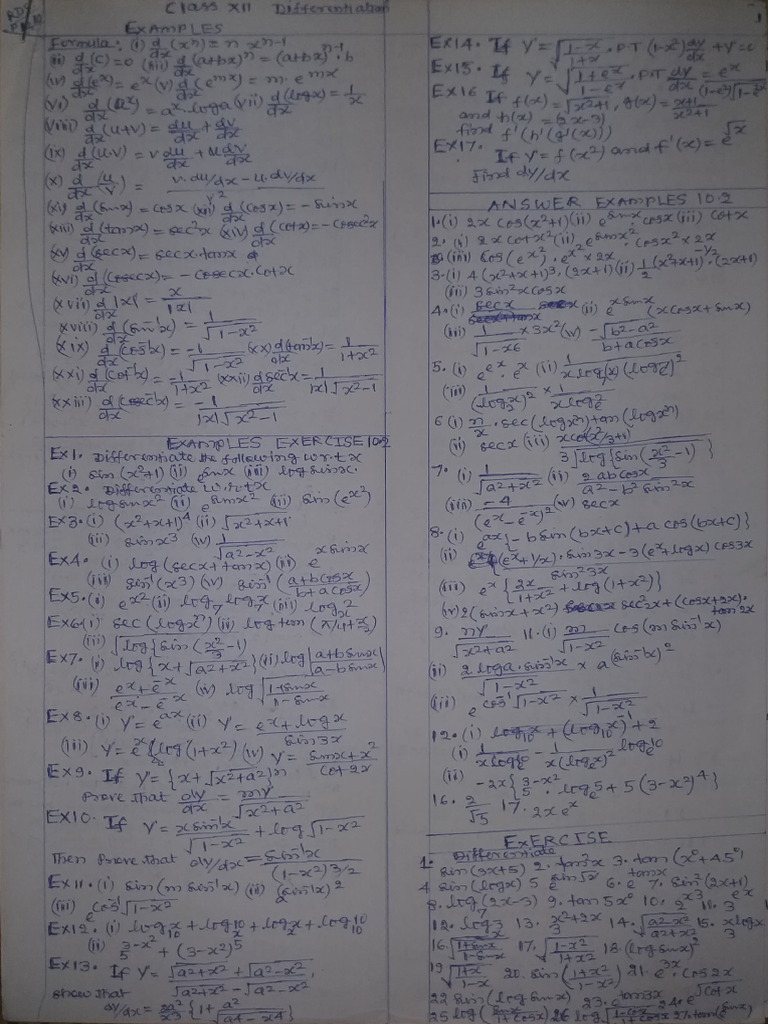 Class XII Differentiation
EXAMPLES
Formula: (i) d/dx (xⁿ) = n xⁿ⁻¹
(ii) d/dx (c) = 0 (iii) d/dx (a+bx)ⁿ = (a+bx)ⁿ⁻¹·b
(iv) d/dx (eˣ) = eˣ (v) d/dx (eᵐˣ) = m·eᵐˣ
(vi) d/dx (aˣ) = aˣ·log a (vii) d/dx (log x) = 1/x
(viii) d/dx (u+v) = du/dx + dv/dx
(ix) d/dx (u·v) = v du/dx + u dv/dx
(x) d/dx (u/v) = v·du/dx - u·dv/dx / v²
(xi) d/dx (sinx) = cosx (xii) d/dx (cosx) = -sinx
(xiii) d/dx (tanx) = sec²x (xiv) d/dx (cotx) = -cosec²x
(xv) d/dx (secx) = secx·tanx
(xvi) d/dx (cosecx) = -cosecx·cotx
(xvii) d/dx |x| = x/|x|
(xviii) d/dx (sin⁻¹x) = 1/√(1-x²)
(xix) d/dx (cos⁻¹x) = -1/√(1-x²) (xx) d/dx (tan⁻¹x) = 1/(1+x²)
(xxi) d/dx (cot⁻¹x) = -1/(1+x²) (xxii) d/dx sec⁻¹x = 1/|x|√(x²-1)
(xxiii) d/dx (cosec⁻¹x) = -1/|x|√(x²-1)
EXAMPLES EXERCISE 10.2
Ex1. Differentiate the following w.r.t x
(i) sin(x²+1) (ii) e^sinx (iii) log sinx.
Ex2. Differentiate w.r.t x
(i) log sinx² (ii) e^sinx² (iii) sin(e^x²)
Ex3. (i) (x²+x+1)⁴ (ii) √(x²+x+1)
(iii) sinx³ (iv) 1/√(a²-x²)
Ex4. (i) log(secx+tanx) (ii) e^xsinx
(iii) sin⁻¹(x³) (iv) sin⁻¹((a+bcosx)/(b+acosx))
Ex5. (i) e^x² (ii) log₇ log₇x (iii) logₓ2
Ex6. (i) sec(log xⁿ) (ii) log tan(π/4+x/2)
(iii) √log{sin(x²/3-1)}
Ex7. (i) log{x+√(a²+x²)} (ii) log|(a+bsinx)/(a-bsinx)|
(iii) (eˣ+e⁻ˣ)/(eˣ-e⁻ˣ) (iv) log√((1+sinx)/(1-sinx))
Ex8. (i) Y = e^ax (ii) Y = (eˣ+logx)/sin3x
(iii) Y = eˣ log(1+x²) (iv) Y = (sinx+x²)/cot2x
Ex9. If Y = {x+√(x²+a²)}ⁿ
Prove that dy/dx = ny/√(x²+a²)
Ex10. If Y = xsin⁻¹x/√(1-x²) + log√(1-x²)
Then prove that dy/dx = sin⁻¹x/(1-x²)^3/2
Ex11. (i) sin(m sin⁻¹x) (ii) a^(sin⁻¹x)²
(iii) e^cos⁻¹√(1-x²)
Ex12. (i) log₁₀x + logₓ10 + logₓx + log₁₀10
(ii) 5^(3-x²) + (3-x²)⁵
Ex13. If Y = (√(a²+x²)+√(a²-x²))/(√(a²+x²)-√(a²-x²)),
show that
dy/dx = -2a²/x³ {1+ a²/√(a⁴-x⁴)}
Ex14. If Y = √((1-x)/(1+x)), P.T (1-x²)dy/dx + y = 0
Ex15. If Y = √((1+eˣ)/(1-eˣ)), P.T dy/dx = eˣ/(1-eˣ)√(1-e²ˣ)
Ex16 If f(x) = √(x²+1), g(x) = (x+1)/(x²+1)
and h(x) = (2x-3)
find f'(h'(g'(x)))
Ex17. If Y = f(x²) and f'(x) = e^√x
Find dy/dx
ANSWER EXAMPLES 10.2
1. (i) 2x cos(x²+1) (ii) e^sinx cosx (iii) cotx
2. (i) 2x cotx² (ii) e^sinx²·cosx²×2x
(iii) cos(e^x²)·e^x²×2x
3. (i) 4(x²+x+1)³·(2x+1) (ii) 1/2(x²+x+1)^-1/2·(2x+1)
(iii) 3sin²xcosx
4. (i) secx (ii) e^xsinx (xcosx+sinx)
(iii) 1/√(1-x⁶) × 3x² (iv) -√(b²-a²)/(b+acosx)
5. (i) e^eˣ·eˣ (ii) 1/xlog(x)(log7)²
6 (i) n/x·sec(logxⁿ)tan(logxⁿ)
(ii) secx (iii) / 3√log{sin(x²/3-1)}
7. (i) 1/√(a²+x²) (ii) 2abcosx/(a²-b²sin²x)
(iii) -4/(eˣ-e⁻ˣ)² (iv) secx
8. (i) e^ax{-bsin(bx+c)+acos(bx+c)}
(ii) (eˣ+1/x)·sin3x-3(eˣ+logx)cos3x / sin²3x
(iii) eˣ{2x/(1+x²)+log(1+x²)}
(iv) 2(sinx+x²) sec²2x+(cosx+2x)·tan2x
9. ny/√(x²+a²) 11. (i) m/√(1-x²) cos(msin⁻¹x)
(ii) 2loga·sin⁻¹x/√(1-x²) × a^(sin⁻¹x)²
(iii) e^cos⁻¹√(1-x²) × 1/√(1-x²)
12. (i) log₁₀x+(log₁₀x)⁻¹+2
(i) 1/xlogₑ10 - 1/x(logx)² logₑ10
(ii) -2x{5^(3-x²)·logₑ5+5(3-x²)⁴}
16. 2/√5 17. 2xeˣ
EXERCISE
Differentiate
1. sin(3x+5) 2. tan²x 3. tan(x°+45°)
4 sin(logx) 5 e^sin√x 6. e^tanx 7. sin²(2x+1)
8. log₇(2x-3) 9. tan5x° 10. 2^x³ 11. 3^eˣ
12. logₓ3 13. 3^(x²+2x) 14. √((a²-x²)/(a²+x²)) 15. 3^xlogx
16. √((1+sinx)/(1-sinx)) 17. √((1-x²)/(1+x²)) 18. (logsinx)²
19 √((1+x)/(1-x)) 20. sin((1+x²)/(1-x²)) 21. e^3x·cos2x
22 sin(logsinx) 23. e^tan3x 24. e^√cotx
25 log(sinx/(1+cosx)) 26 log√((1-cosx)/(1+cosx)) 27. tan(e^sinx)